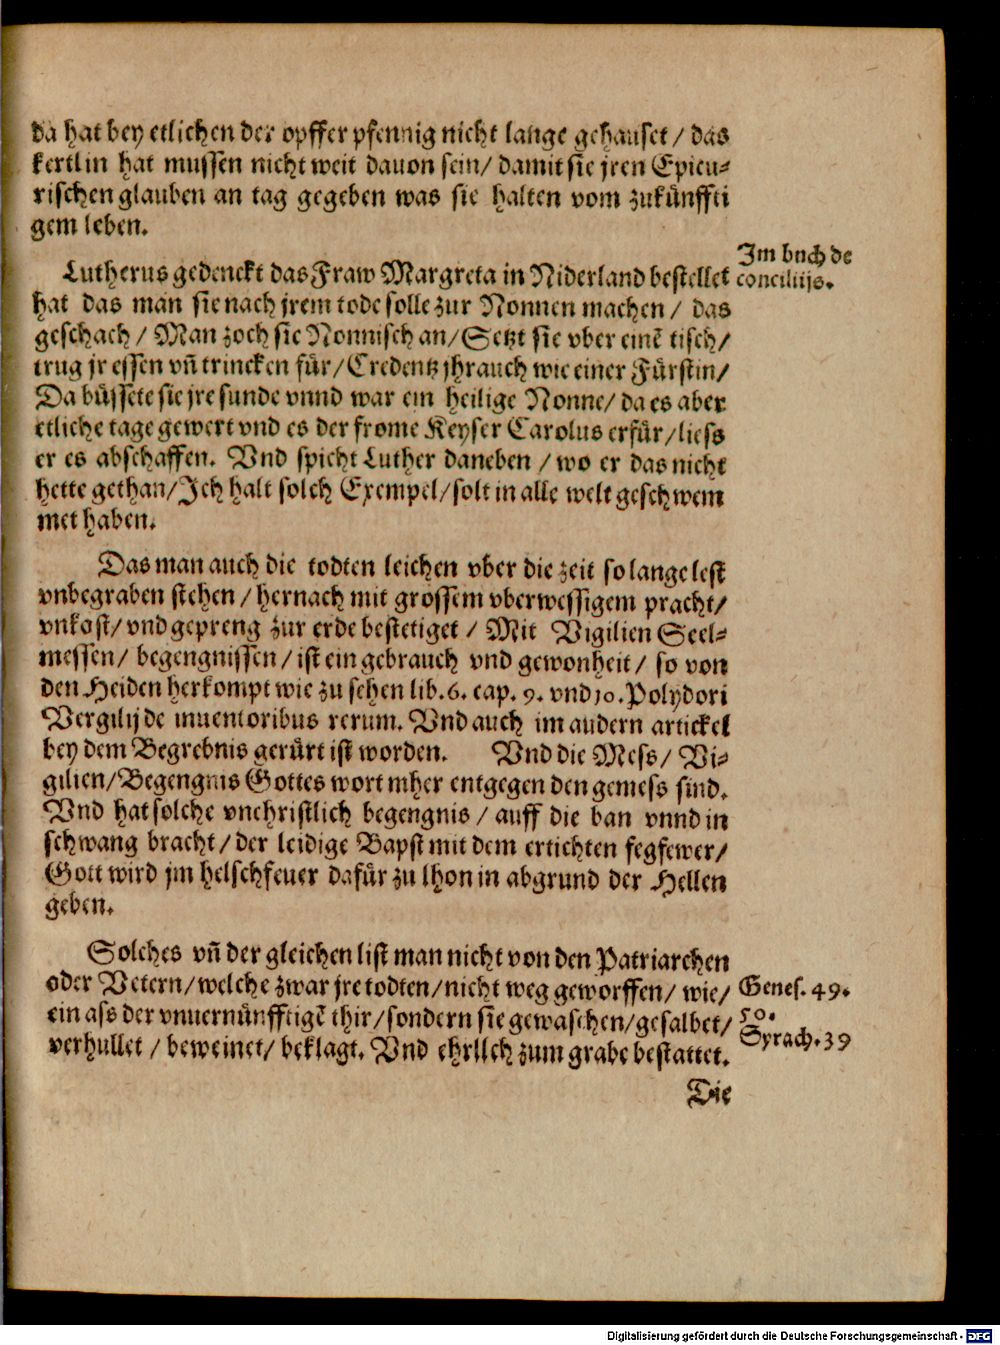 da hat bey etlichen der opffer pfennig nicht lange gehauset / das
kertlin hat mussen nicht weit dauon sein / damit sie jren Epicu-
rischen glauben an tag gegeben was sie halten vom zukünffti
gem leben.
Lutherus gedenckt das Fraw Margreta in Niderland bestellet
Im buch de
conciliijs.
hat das man sie nach jrem tode solle zur Nonnen machen / das
geschach / Man zoch sie Nonnisch an / Setzt sie vber einē tisch /
trug jr essen vñ trincken für / Credentz jhr auch wie einer Fürstin /
Da büssete sie jre sunde vnnd war ein heilige Nonne / da es aber
etliche tage gewert vnd es der frome Keyser Carolus erfür / liess
er es abschaffen. Vnd spicht Luther daneben / wo er das nicht
hette gethan / Ich halt solch Exempel / solt in alle welt geschwem
met haben.
Das man auch die todten leichen vber die zeit so lange lest
vnbegraben stehen / hernach mit grossem vberwessigem pracht /
vnkost / vnd gepreng zur erde bestetiget / Mit Vigilien Seel-
messen / begengnissen / ist ein gebrauch vnd gewonheit / so von
den Heiden herkompt wie zu sehen lib. 6. cap. 9. vnd 10. Polydori
Vergilij de inuentoribus rerum. Vnd auch im andern artickel
bey dem Begrebnis gerürt ist worden. Vnd die Mess / Vi-
gilien / Begengnis Gottes wort mher entgegen den gemess sind.
Vnd hat solche vnchristlich begengnis / auff die ban vnnd in
schwang bracht / der leidige Bapst mit dem ertichten fegfewer /
Gott wird jm helschfeuer dafür zu lhon in abgrund der Hellen
geben.
Solches vñ der gleichen list man nicht von den Patriarchen
oder Vetern / welche zwar jre todten / nicht weg geworffen / wie /
Genes. 49.
50.
ein ass der vnuernünfftigē thir / sondern sie gewaschen / gesalbet /
Syrach. 39
verhullet / beweinet / beklagt. Vnd ehrllch zum grabe bestattet.
Die
Digitalisierung gefördert durch die Deutsche Forschungsgemeinschaft - DFG